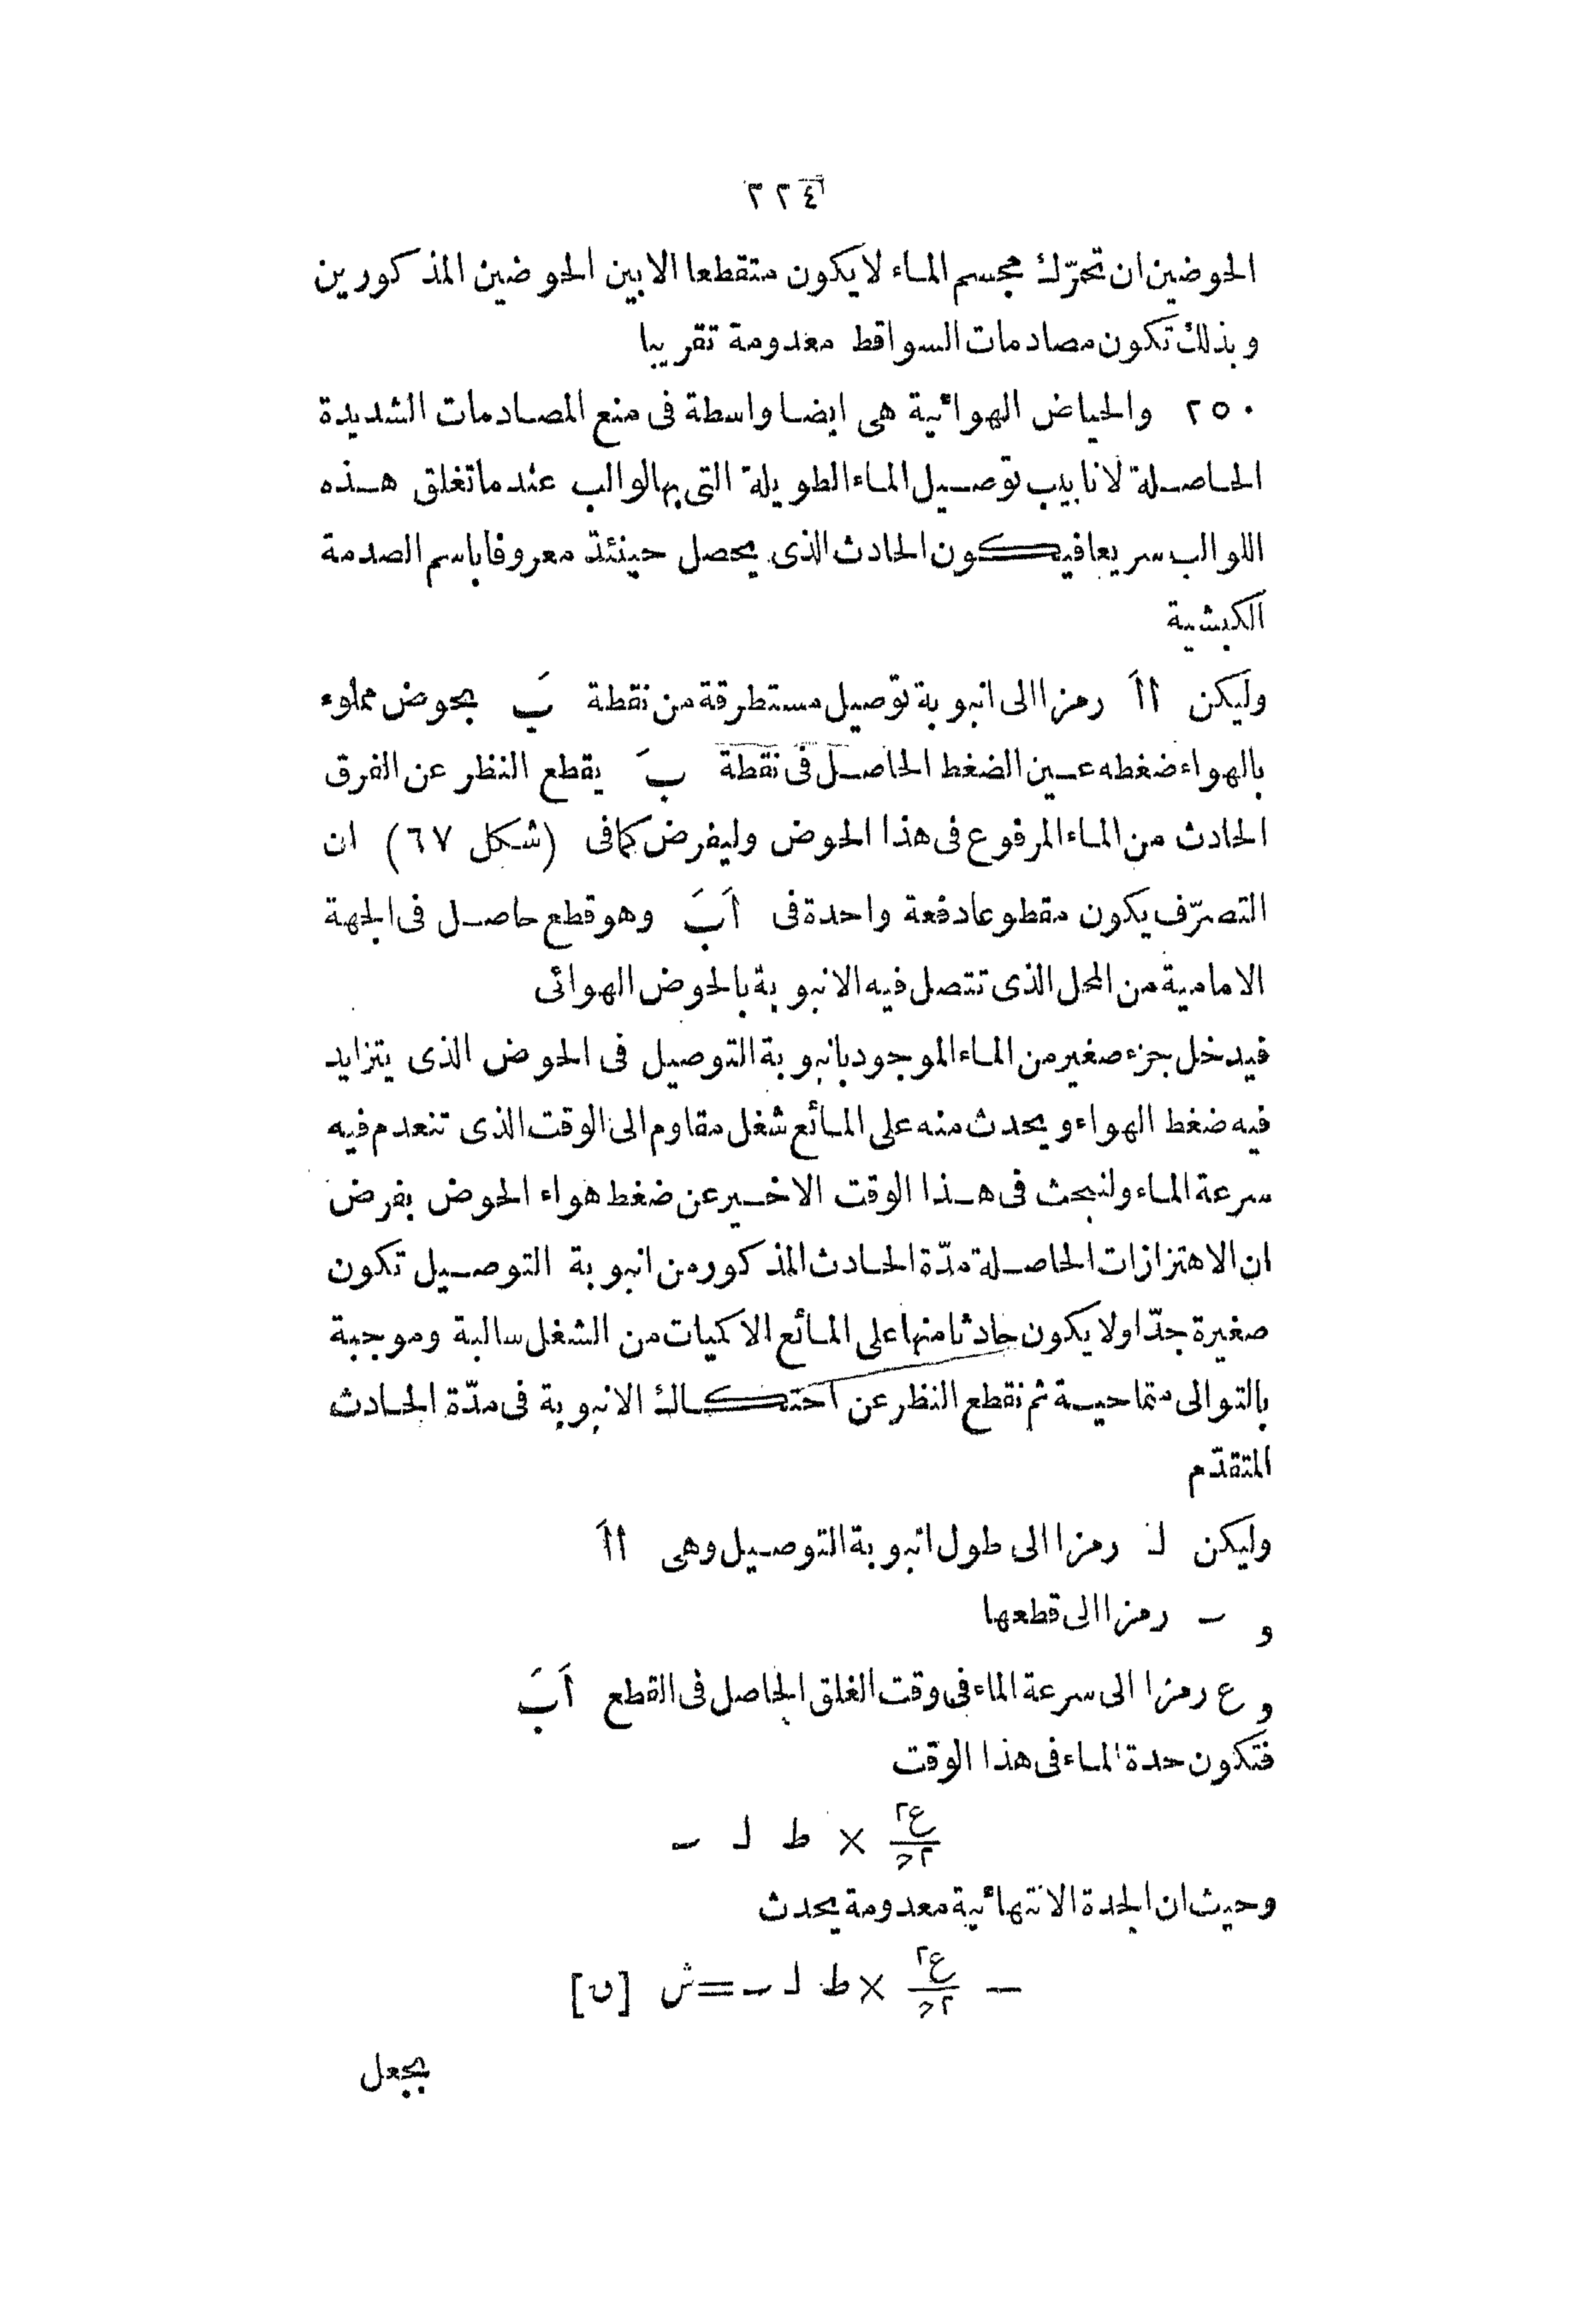 ٢٢٤
الحوضين ان تحرّك مجسم الماء لا يكون متقطعا الا بين الحوضين المذكورين
وبذلك تكون مصادمات السواقط معدومة تقريبا
٢٥٠ والحياض الهوائية هى ايضا واسطة فى منع المصادمات الشديدة
الحاصلة لانابيب توصيل الماء الطويلة التى بها لوالب عند ما تغلق هذه
اللوالب سريعا فيكون الحادث الذى يحصل حينئذ معروفا باسم الصدمة
الكبشية
وليكن اأَ رمزا الى انبوبة توصيل مستطرقة من نقطة بَ بحوض مملوء
بالهواء ضغطه عين الضغط الحاصل فى نقطة بَ يقطع النظر عن الفرق
الحادث من الماء المرفوع فى هذا الحوض وليفرض كما فى (شكل ٦٧) ان
التصرّف يكون مقطوعا دفعة واحدة فى اَبَ وهو قطع حاصل فى الجهة
الامامية من المحل الذى تتصل فيه الانبوبة بالحوض الهوائى
فيدخل جزء صغير من الماء الموجود بانبوبة التوصيل فى الحوض الذى يتزايد
فيه ضغط الهواء ويحدث منه على المائع شغل مقاوم الى الوقت الذى تنعدم فيه
سرعة الماء ولنبحث فى هذا الوقت الاخير عن ضغط هواء الحوض بفرض
ان الاهتزازات الحاصلة مدّة الحادث المذكور من انبوبة التوصيل تكون
صغيرة جدّا ولا يكون حادثا منها على المائع الا كميات من الشغل سالبة وموجبة
بالتوالى متماحية ثم نقطع النظر عن احتكاك الانبوبة فى مدّة الحادث
المتقدّم
وليكن لـ رمزا الى طول انبوبة التوصيل وهى اأَ
و ـ رمزا الى قطعها
و ع رمزا الى سرعة الماء فى وقت الغلق الحاصل فى القطع اَبَ
فتكون حدة الماء فى هذا الوقت
ع٢/٢ح × ط لـ ـ
وحيث ان الحدة الانتهائية معدومة يحدث
− ع٢/٢ح × ط لـ ـ = ش [ں]
بجعل